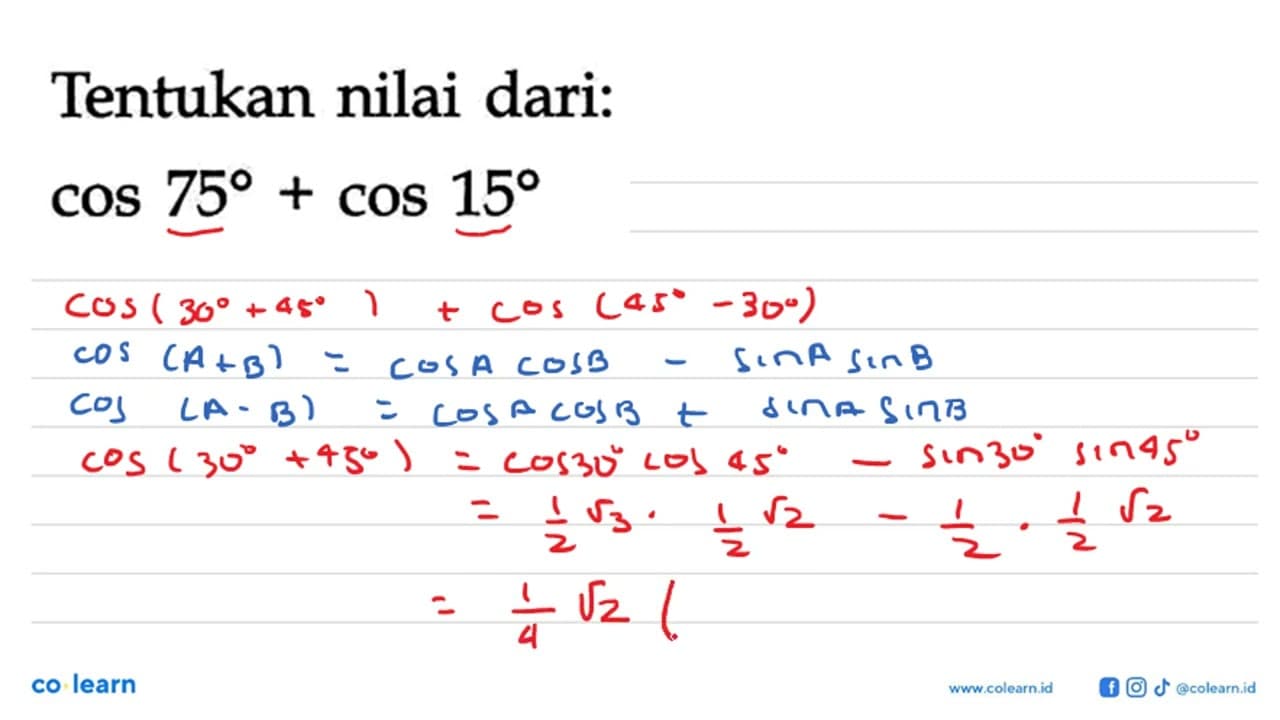 Tentukan nilai dari:
cos 75° + cos 15°
cos (30° + 45° ) + cos (45° - 30°)
cos (A + B) = cos A cos B - sin A sin B
cos (A - B) = cos A cos B + sin A sin B
cos (30° + 45°) = cos 30° cos 45° - sin 30° sin 45°
= 1/2 √3 . 1/2 √2 - 1/2 . 1/2 √2
= 1/4 √2 (
co learn
www.colearn.id @colearn.id